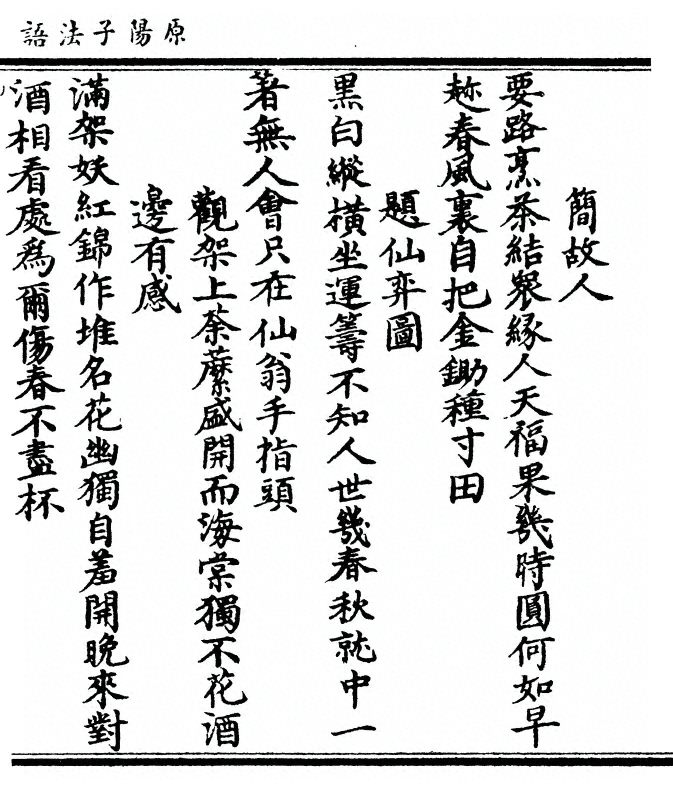 原陽子法語
簡故人
要路烹茶結衆緣人天福果幾時圓何如早
趂春風裏自把金鋤種寸田
題仙弈圖
黑白縱橫坐運籌不知人世幾春秋就中一
著無人會只在仙翁手指頭
觀架上荼蘼盛開而海棠獨不花酒
邊有感
滿架妖紅錦作堆名花幽獨自羞開晚來對
酒相看處爲爾傷春不盡杯